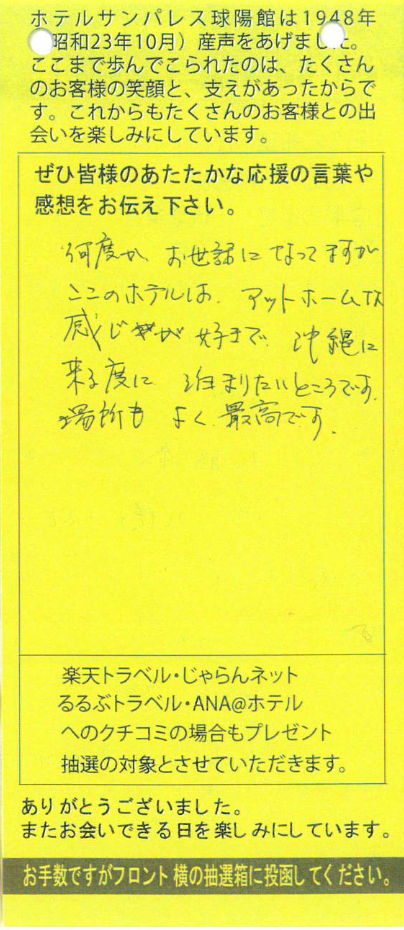 ホテルサンパレス球陽館は1948年
昭和23年10月）産声をあげました。
ここまで歩んでこられたのは、たくさん
のお客様の笑顔と、支えがあったからで
す。これからもたくさんのお客様との出
会いを楽しみにしています。
ぜひ皆様のあたたかな応援の言葉や
感想をお伝え下さい。
何度か お世話になってますが
ここのホテルは、アットホームな
感じが 好きで 沖縄に
来る度に 泊まりたいところです。
場所も よく 最高です。
楽天トラベル・じゃらんネット
るるぶトラベル・ANA@ホテル
へのクチコミの場合もプレゼント
抽選の対象とさせていただきます。
ありがとうございました。
またお会いできる日を楽しみにしています。
お手数ですがフロント横の抽選箱に投函してください。